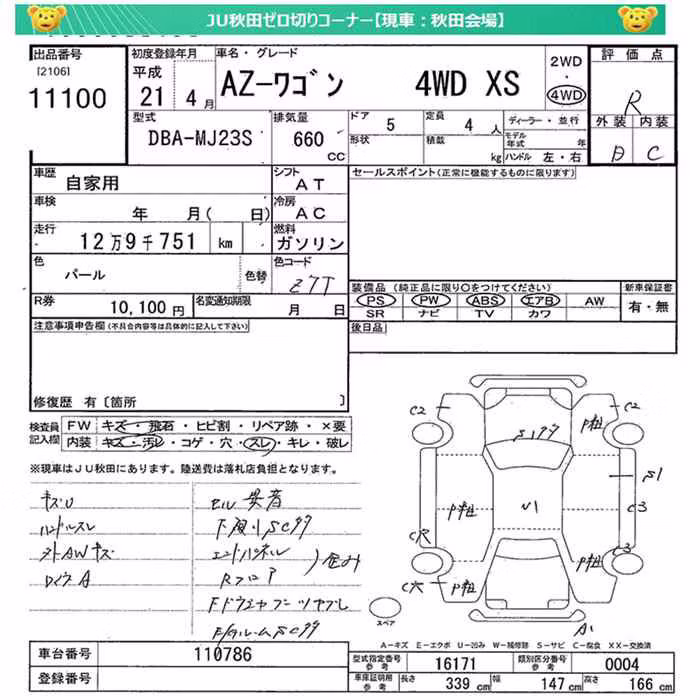 JU秋田ゼロ切りコーナー【現車：秋田会場】
出品番号
[2106]
11100
初度登録年月
平成
21 4月
車名・グレード
AZ-ワゴン 4WD XS
2WD
・
4WD
評価点
R
外装 内装
B C
型式
DBA-MJ23S
排気量
660
CC
ドア 5
形状
定員 4 人
積載 kg
ディーラー・並行
モデル年式 年
ハンドル 左・右
車歴 自家用
シフト AT
車検 年 月( 日)
冷房 AC
走行 12万9千751 km
燃料 ガソリン
色 パール 色替
色コード Z7T
R券 10,100円
名変通知期限 月 日
セールスポイント(正常に機能するものに限ります)
装備品 (純正品に限り〇をつけてください)
新車保証書
PS PW ABS エアB AW
有・無
SR ナビ TV カワ
後日品
注意事項申告欄(不具合内容等は具体的に記入して下さい)
修復歴 有〔箇所 〕
検査員記入欄
FW キズ・飛石・ヒビ割・リペア跡・×要
内装 キズ・汚レ・コゲ・穴・スレ・キレ・破レ
※現車はJU秋田にあります。陸送費は落札店負担となります。
キズU
ハンドルスレ
ヌトAWキズ
セル異音
下廻りSCササ
エンドパネル
Rフロア
歪み
C2
C2
P粗
S1ササ
S1
U1
P粗
C3
C穴
P粗
P粗
C3
C穴
P粗
P粗
A1
スペア
A-キズ E-エクボ U-凹み W-補修跡 S-サビ C-腐食 XX-交換済
車台番号 110786
登録番号
型式指定番号 参考 16171
類別区分番号 参考 0004
車庫証明用 参考 長さ 339cm 幅 147cm 高さ 166cm